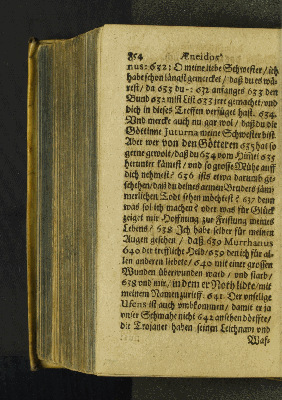 854 Æneidos
nus: 632: O meine liebe Schwester / ich
habe schon längst gemercket / daß du es wä-
rest / da 633 du -: 672 anfangs 633 den
Bund 632 mist List 633 zertgemachet / und
dich in dieses Treffen verfüget hast. 634
Und mercke auch nu gar wol / daß du die
Göttinne Juturna meine Schwester bist.
Aber wer von den Götteren 635 hat so
gerne gewolt / daß du 634 vom Himel 635
herunter kämest / und so grosse Mühe auff
dich nehmest? 636 ists etwa darumb ge-
schehen / daß du deines armen Bruders jäm-
merlichen Todt sehen möchtest? 637 denn
was sol ich machen? oder was für Glück
zeiget mir Hoffnung zur Fristung meines
Lebens / 638 Ich habe selber für meinen
Augen gesehen / daß 639 Murrhanus
640 der treffliche Held / 639 den ich für al-
len anderen liebete / 640 mit einer grossen
Wunden überwunden ward / und starb /
638 und mir / in dem er Noth lidte / mit
meinem Namen zurieff. 641 Der unselige
Ufens ist auch umbkommen / damit er ja
unser Schmahe nicht 642 ansehen dörffte /
die Trojaner haben seinen Leichnam und
Waf-